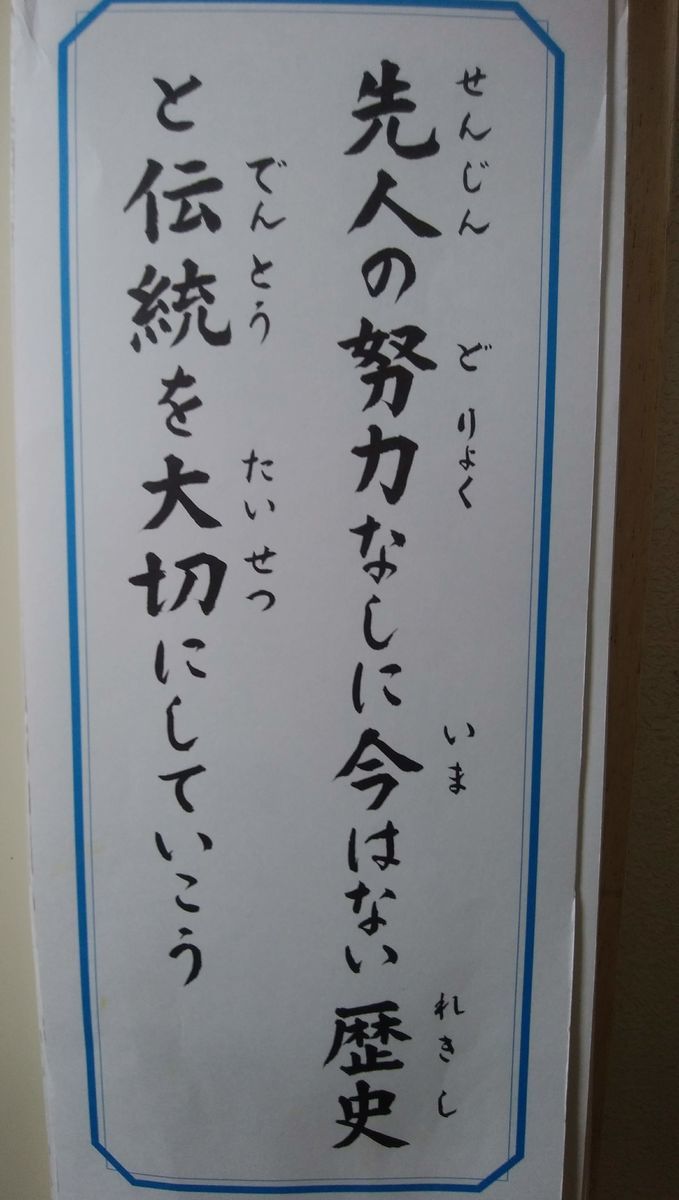 先人の努力なしに今はない 歴史
せんじん どりょく いま れきし
と伝統を大切にしていこう
でんとう たいせつ